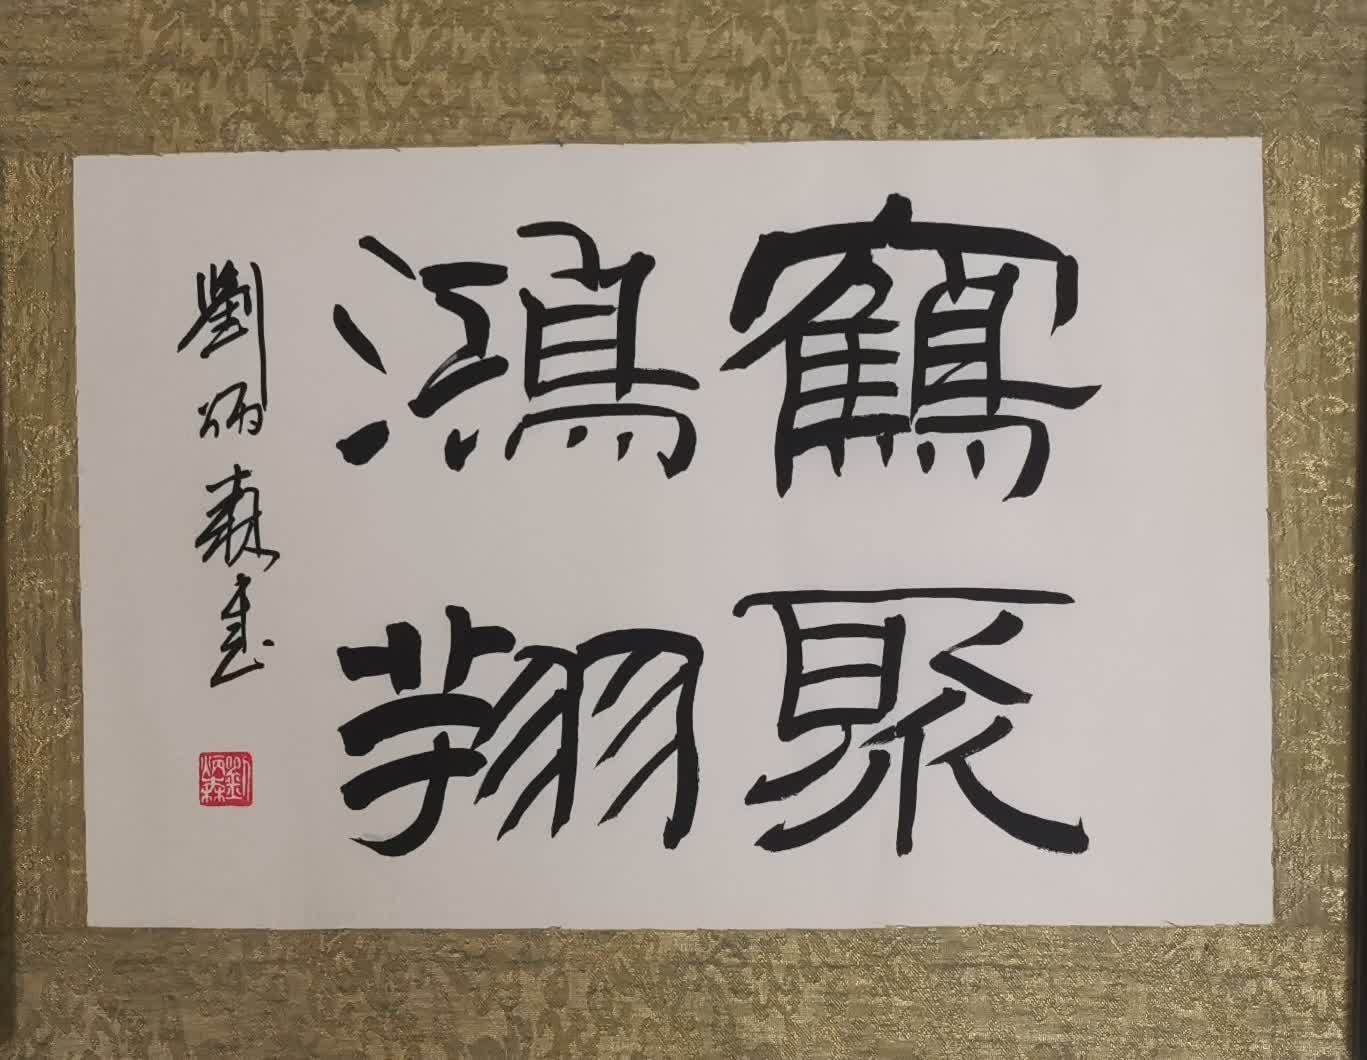 鶴聚
鴻翔
劉炳森書
劉炳森